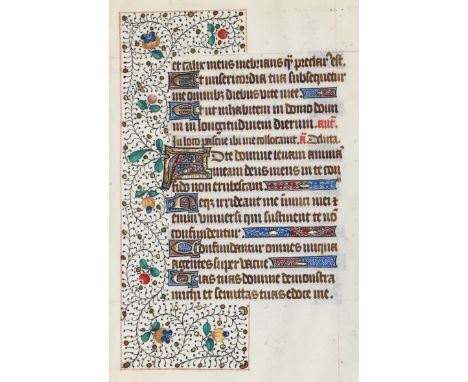 et calix meus inebrians q̄ preclar' est.
Et misericordia tua subsequetur
me omnib; diebus vite mee.
Et ut inhabitem in domo domi
ni in longitudinem dierum. an̄.
In loco pascue ibi me collocavit. a᷑. Delicta.
Ad te domine levavi animā
meam deus meus in te con
fido non erubescam
Neq; irrideant me inimici mei et
enim universi qui sustinent te nō
confundentur
Confundantur omnes iniqua
agentes super vacue
Vias tuas domine demonstra
michi et semitas tuas edoce me.